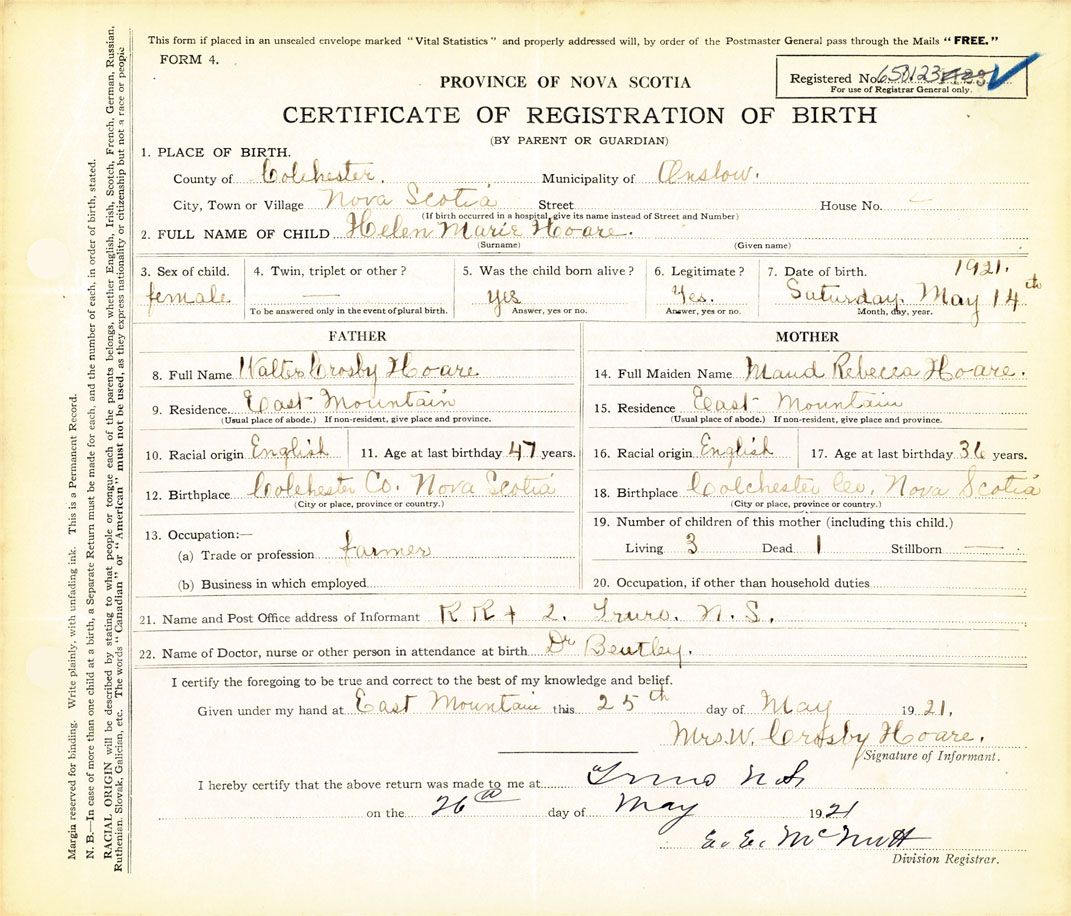 This form if placed in an unsealed envelope marked "Vital Statistics" and properly addressed will, by order of the Postmaster General pass through the Mails "FREE."
FORM 4.
Registered No. 650123
For use of Registrar General only.
PROVINCE OF NOVA SCOTIA
CERTIFICATE OF REGISTRATION OF BIRTH
(BY PARENT OR GUARDIAN)
1. PLACE OF BIRTH.
County of Colchester. Municipality of Onslow.
City, Town or Village Nova Scotia Street House No. —
(If birth occurred in a hospital, give its name instead of Street and Number)
2. FULL NAME OF CHILD Helen Marie Hoare.
(Surname) (Given name)
3. Sex of child. 4. Twin, triplet or other? 5. Was the child born alive? 6. Legitimate? 7. Date of birth. 1921.
female — yes Yes. Saturday, May 14th
To be answered only in the event of plural birth. Answer, yes or no. Answer, yes or no. Month, day, year.
FATHER
8. Full Name Walter Crosby Hoare
9. Residence East Mountain
(Usual place of abode.) If non-resident, give place and province.
10. Racial origin English 11. Age at last birthday 47 years.
12. Birthplace Colchester Co. Nova Scotia
(City or place, province or country.)
13. Occupation:—
(a) Trade or profession farmer
(b) Business in which employed
MOTHER
14. Full Maiden Name Maud Rebecca Hoare.
15. Residence East Mountain
(Usual place of abode.) If non-resident, give place and province.
16. Racial origin English 17. Age at last birthday 36 years.
18. Birthplace Colchester Co, Nova Scotia
(City or place, province or country.)
19. Number of children of this mother (including this child.)
Living 3 Dead 1 Stillborn —
20. Occupation, if other than household duties
21. Name and Post Office address of Informant R R + 2. Truro. N. S.
22. Name of Doctor, nurse or other person in attendance at birth Dr Bentley.
I certify the foregoing to be true and correct to the best of my knowledge and belief.
Given under my hand at East Mountain this 25th day of May 1921,
Mrs. W. Crosby Hoare.
Signature of Informant.
I hereby certify that the above return was made to me at Truro N S
on the 26th day of May 1921
E. E. McNutt
Division Registrar.
Margin reserved for binding. Write plainly, with unfading ink. This is a Permanent Record.
N. B.—In case of more than one child at a birth, a Separate Return must be made for each, and the number of each, in order of birth, stated.
RACIAL ORIGIN will be described by stating to what people or tongue each of the parents belongs, whether English, Irish, Scotch, French, German, Russian,
Ruthenian, Slovak, Galician, etc. The words "Canadian" or "American" must not be used, as they express nationality or citizenship but not a race or people